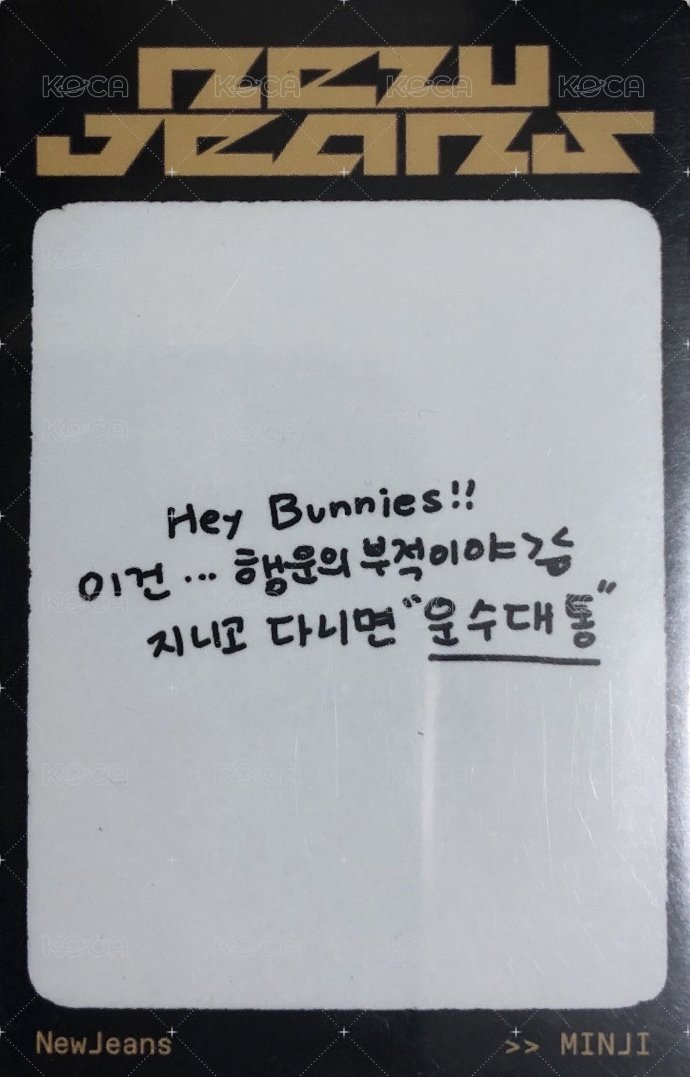 NEW
JEANS
Hey Bunnies!!
이건... 행운의 부적이야
지니고 다니면 "운수대통"
NewJeans
>> MINJI
KOCA